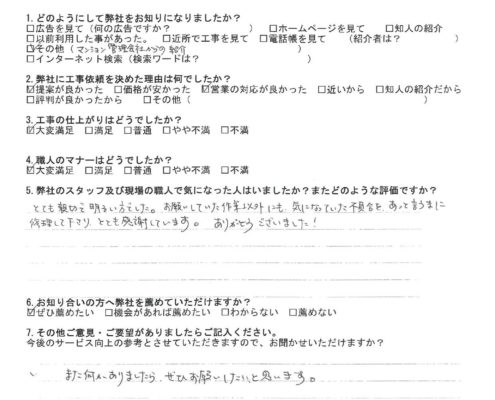 1.どのようにして弊社をお知りになりましたか？
□広告を見て（何の広告ですか？　　　　　）　□ホームページを見て　□知人の紹介
□以前利用した事があった。□近所で工事を見て　□電話帳を見て　（紹介者は？　　　　　）
☑その他（マンション管理会社からの紹介　　　　　）
□インターネット検索（検索ワードは？　　　　　　　　　　）
2.弊社に工事依頼を決めた理由は何でしたか？
☑提案が良かった　□価格が安かった　☑営業の対応が良かった　□近いから　□知人の紹介だから
□評判が良かったから　□その他（　　　　　　　　　　　　　　　　　）
3.工事の仕上がりはどうでしたか？
☑大変満足　□満足　□普通　□やや不満　□不満
4.職人のマナーはどうでしたか？
☑大変満足　□満足　□普通　□やや不満　□不満
5.弊社のスタッフ及び現場の職人で気になった人はいましたか？またどのような評価ですか？
とても親切で明るい方でした。お願いしていた作業以外にも、気になっていた不具合を、あっと言うまに
修理して下さり、とても感謝しています。ありがとうございました！
6.お知り合いの方へ弊社を薦めていただけますか？
☑ぜひ薦めたい　□機会があれば薦めたい　□わからない　□薦めない
7.その他ご意見・ご要望がありましたらご記入ください。
今後のサービス向上の参考とさせていただきますので、お聞かせいただけますか？
また何かありましたら、ぜひお願いしたいと思います。